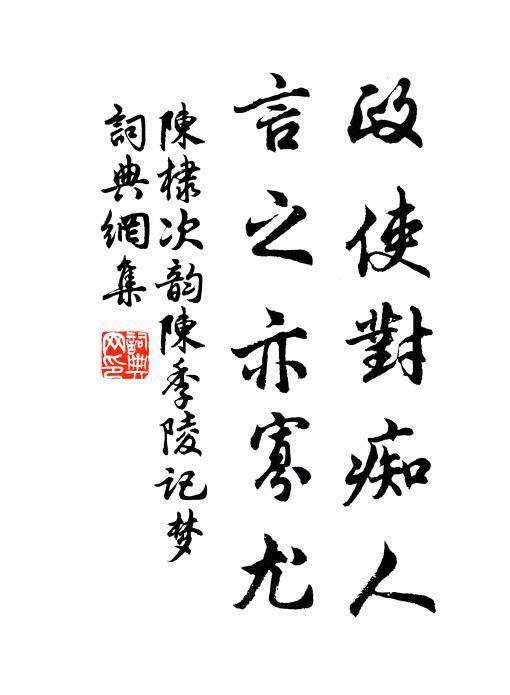 政使對痴人
言之亦寡尤
陳棣次韵陳季陵记梦
詞典網集
詞典網印